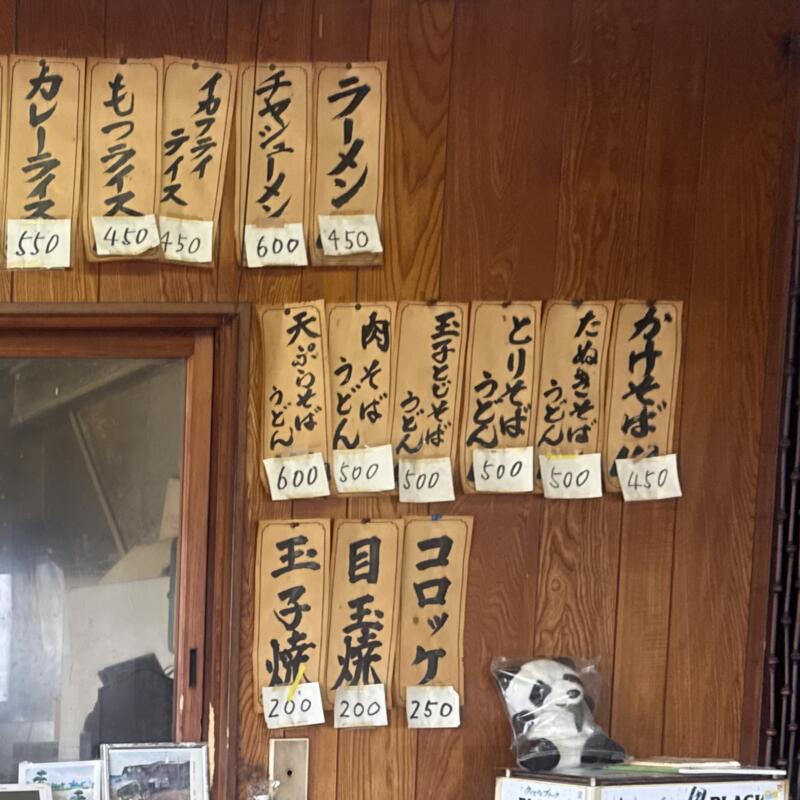 ラーメン
450
チャシューメン
600
イカフライ
ライス
450
もつライス
450
カレーライス
550
かけそば
450
たぬきそば
うどん
500
とりそば
うどん
500
玉子とじそば
うどん
500
肉そば
うどん
500
天ぷらそば
うどん
600
コロッケ
250
目玉焼
200
玉子焼
200